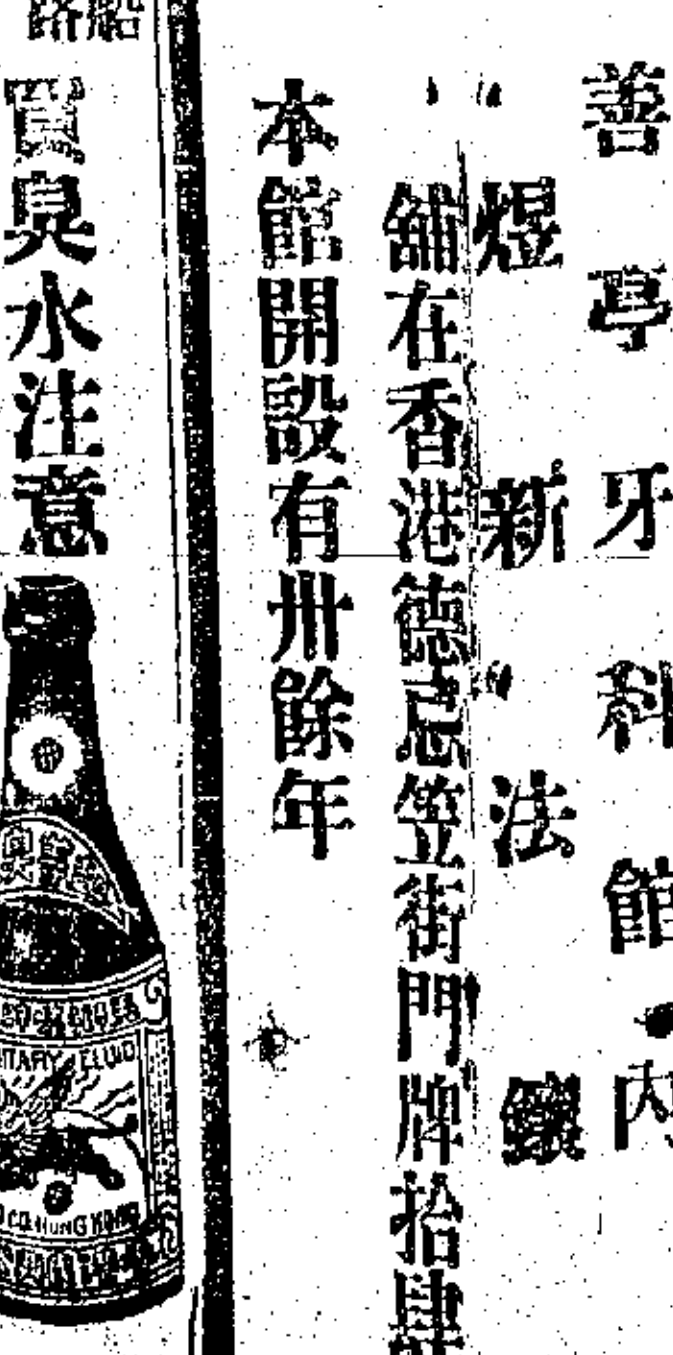 善亭牙科館內
煜新法鑲
舖在香港德忌笠街門牌拾肆
本館開設有卅餘年
買臭水注意
ITARY FLUID
CO. HONG KONG